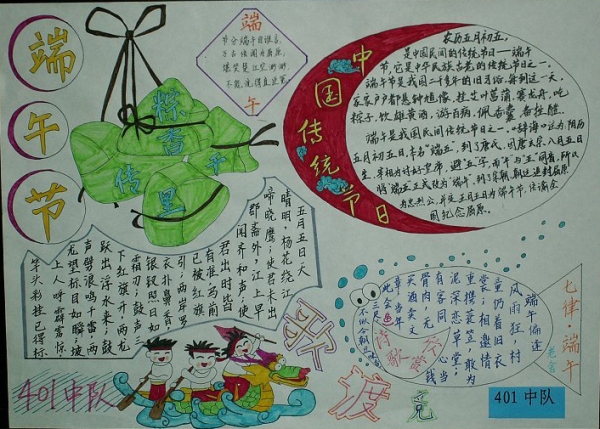 端
午
节
粽香
传千
里
端
节分端午自谁言,
万古传闻为屈原。
堪笑楚江空渺渺,
不能洗得直臣冤。
午
中国传统节日
农历五月初五,
是中国民间的传统节日——端午
节,它是中华民族古老的传统节日之一。
端午节是我国二千多年的旧习俗,每到这一天,
家家户户都悬钟馗像,挂艾叶菖蒲,赛龙舟,吃
粽子,饮雄黄酒,游百病,佩香囊,备牲醴。
端午是我国民间传统节日之一。《辞海》认为:阴历
五月初五日,本名"端五",
五月五日天
晴明,杨花绕江
啼晓鹰;使君未出
郡斋外,江上早
闻齐和声;使
君出时皆
有准,马前
已被红旗
引;两岸
衣扑鼻香,
银钗照日如
霜刃;鼓声三
下红旗开,两龙
跃出浮水来;鼓
声劈浪鸣千雷;两
龙望标目如瞬;坡
上人呼霹雳惊
竿头彩挂已得标
歌
渡
竞
七律·端午
老舍
端午偏逢
风雨狂,村
童仍着旧衣
裳;相邀情
重携蓑笠,敢为
泥深恋草堂;
有客同心当
骨肉,无钱
买酒卖文
章;当年
此会
401中队
401 中队